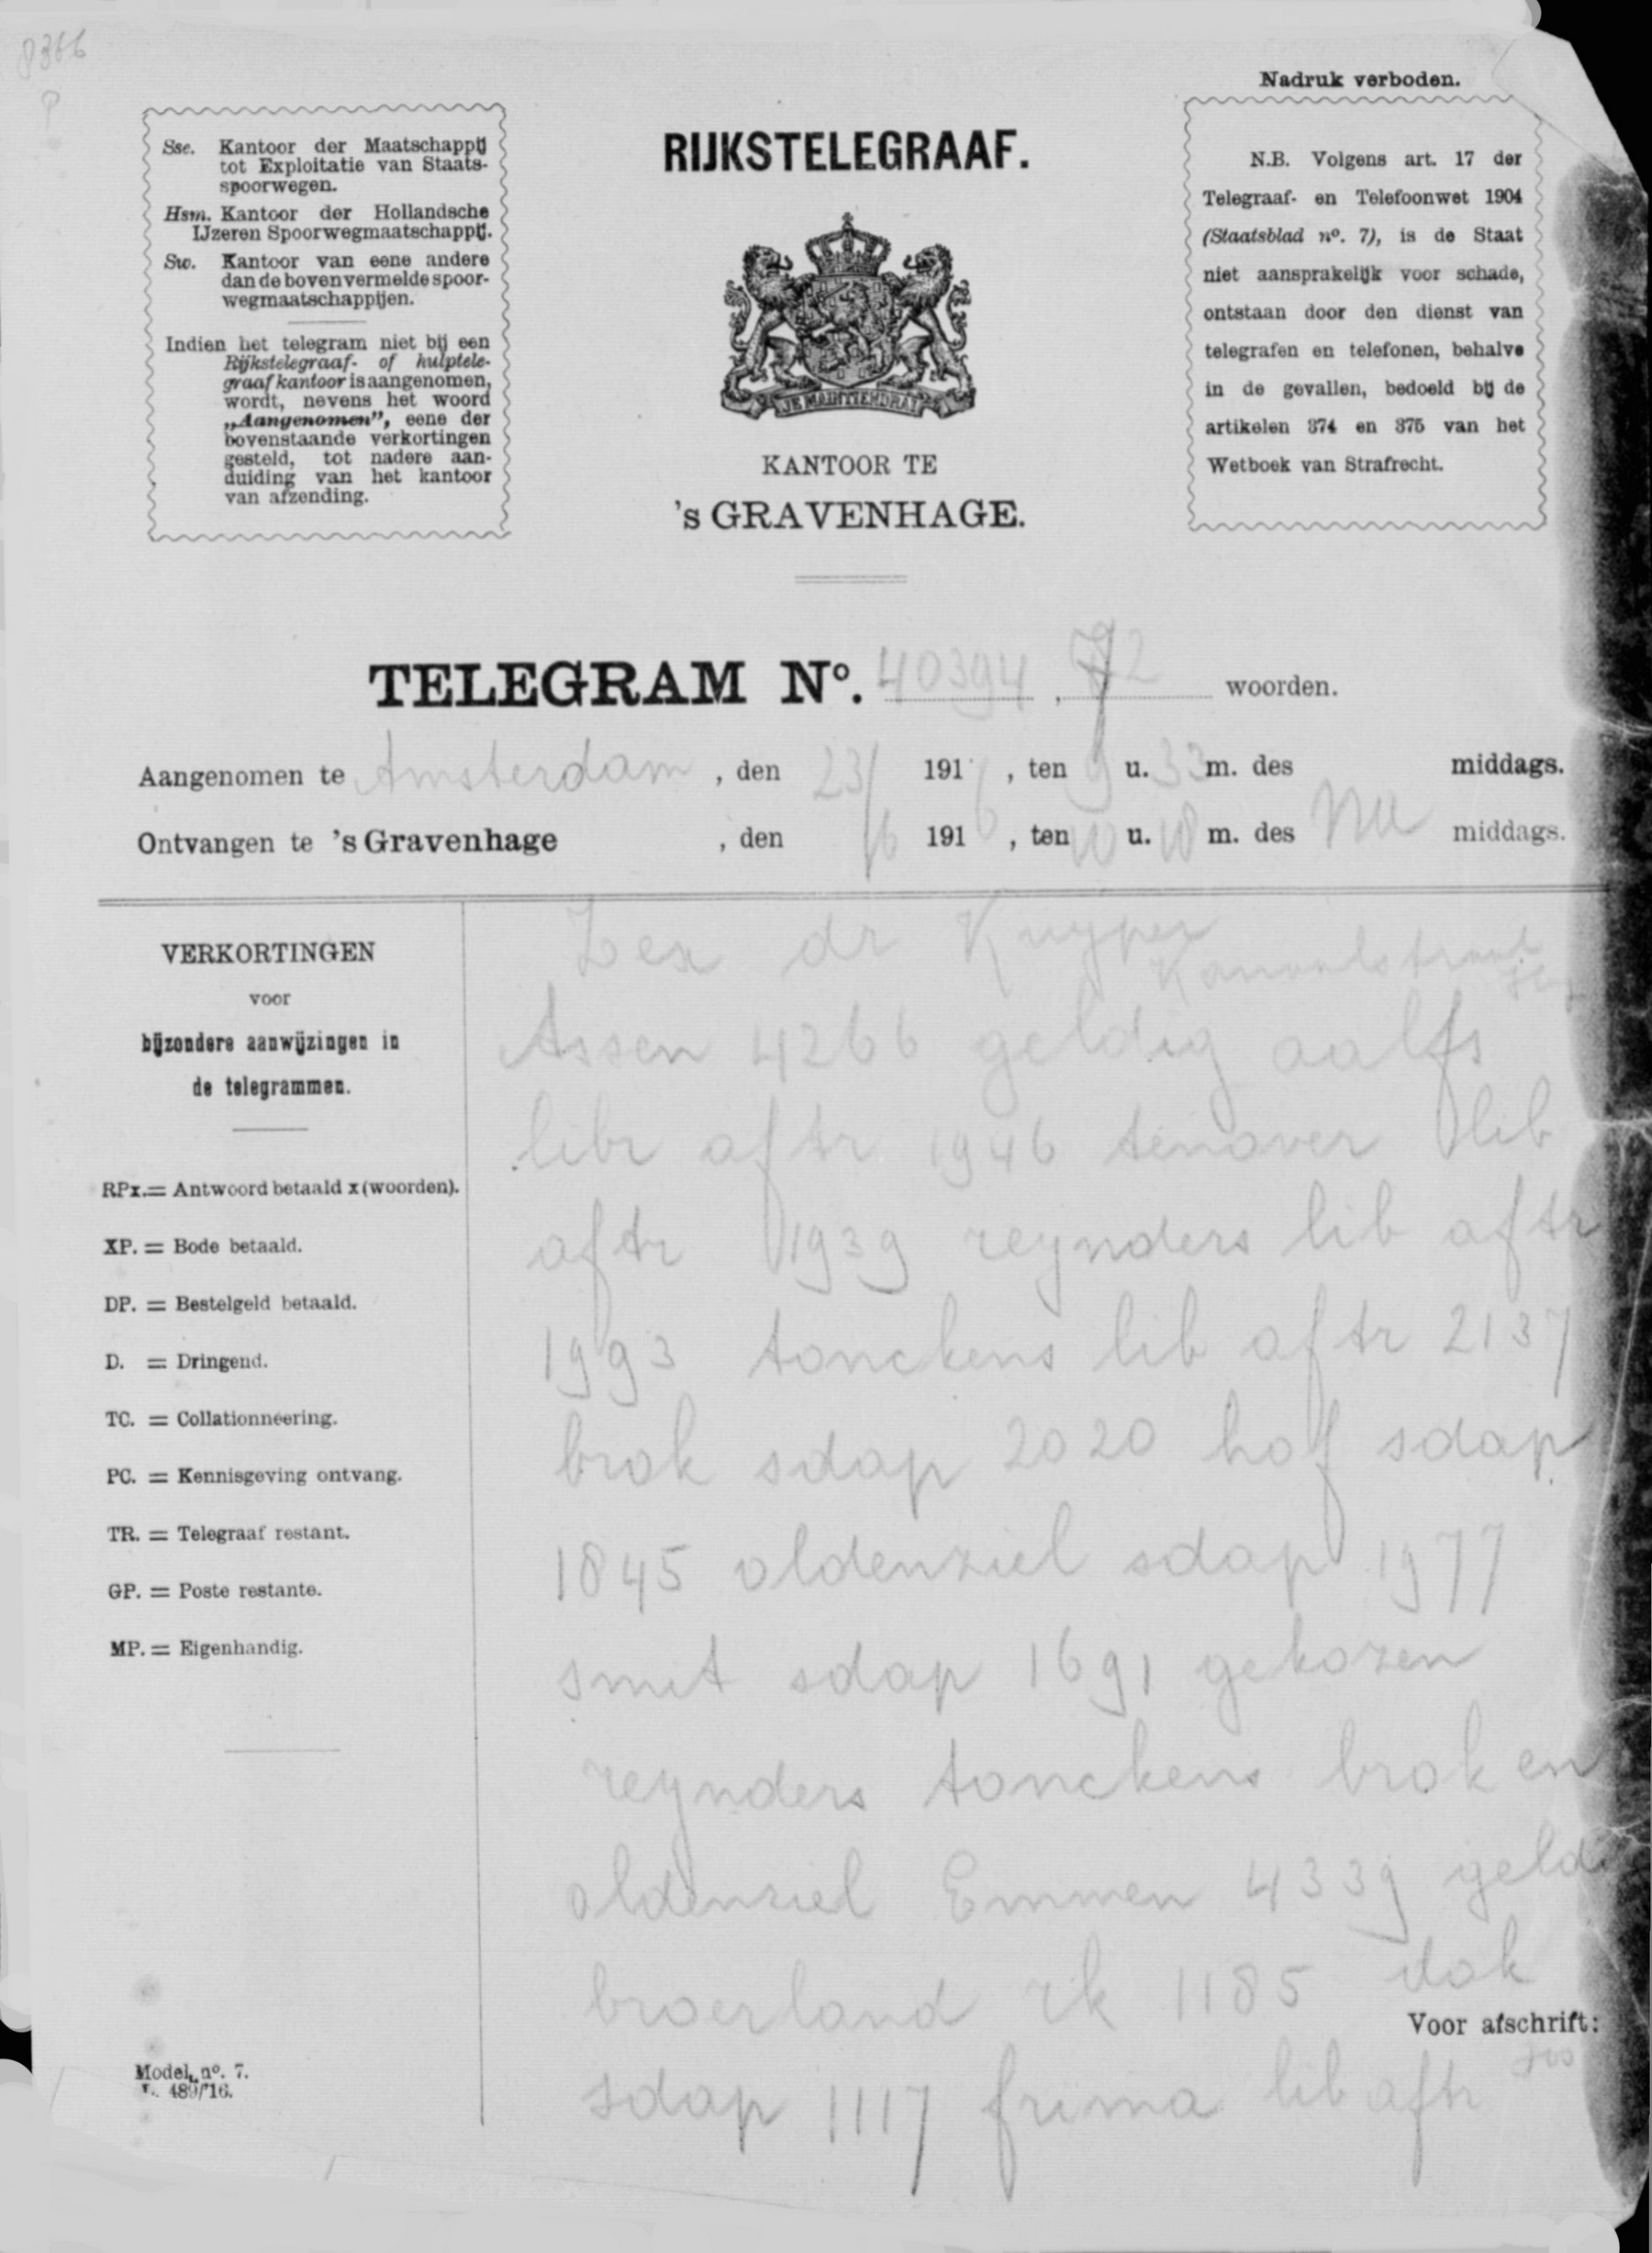 8366
Nadruk verboden.
Sse. Kantoor der Maatschappij
tot Exploitatie van Staats-
spoorwegen.
Hsm. Kantoor der Hollandsche
IJzeren Spoorwegmaatschappij.
Sw. Kantoor van eene andere
dan de bovenvermelde spoor-
wegmaatschappijen.
Indien het telegram niet bij een
Rijkstelegraaf- of hulptele-
graafkantoor is aangenomen,
wordt, nevens het woord
„Aangenomen”, eene der
bovenstaande verkortingen
gesteld, tot nadere aan-
duiding van het kantoor
van afzending.
RIJKSTELEGRAAF.
JE MAINTIENDRAI
KANTOOR TE
's GRAVENHAGE.
N.B. Volgens art. 17 der
Telegraaf- en Telefoonwet 1904
(Staatsblad nº. 7), is de Staat
niet aansprakelijk voor schade,
ontstaan door den dienst van
telegrafen en telefonen, behalve
in de gevallen, bedoeld bij de
artikelen 374 en 375 van het
Wetboek van Strafrecht.
TELEGRAM Nº. 40394 , 72 woorden.
Aangenomen te Amsterdam , den 23/ 1916 , ten 9 u. 33 m. des middags.
Ontvangen te 's Gravenhage , den /6 1916 , ten 10 u. 18 m. des na middags.
VERKORTINGEN
voor
bijzondere aanwijzingen in
de telegrammen.
RPx.= Antwoord betaald x (woorden).
XP. = Bode betaald.
DP. = Bestelgeld betaald.
D. = Dringend.
TC. = Collationneering.
PC. = Kennisgeving ontvang.
TR. = Telegraaf restant.
GP. = Poste restante.
MP. = Eigenhandig.
Zex dr Kuyper
Kanaalstraat
Assen 4266 geldig aalfs
libr aftr 1946 tenover lib
aftr 1939 reynders lib aftr
1993 tonckens lib aftr 2137
brok sdap 2020 hof sdap
1845 oldenziel sdap 1977
smit sdap 1691 gekozen
reynders tonckens brok en
oldenziel Emmen 4339 geld
broerland rk 1185 dok
sdap 1117 frima lib aftr
Voor afschrift:
Model nº. 7.
L. 489/'16.